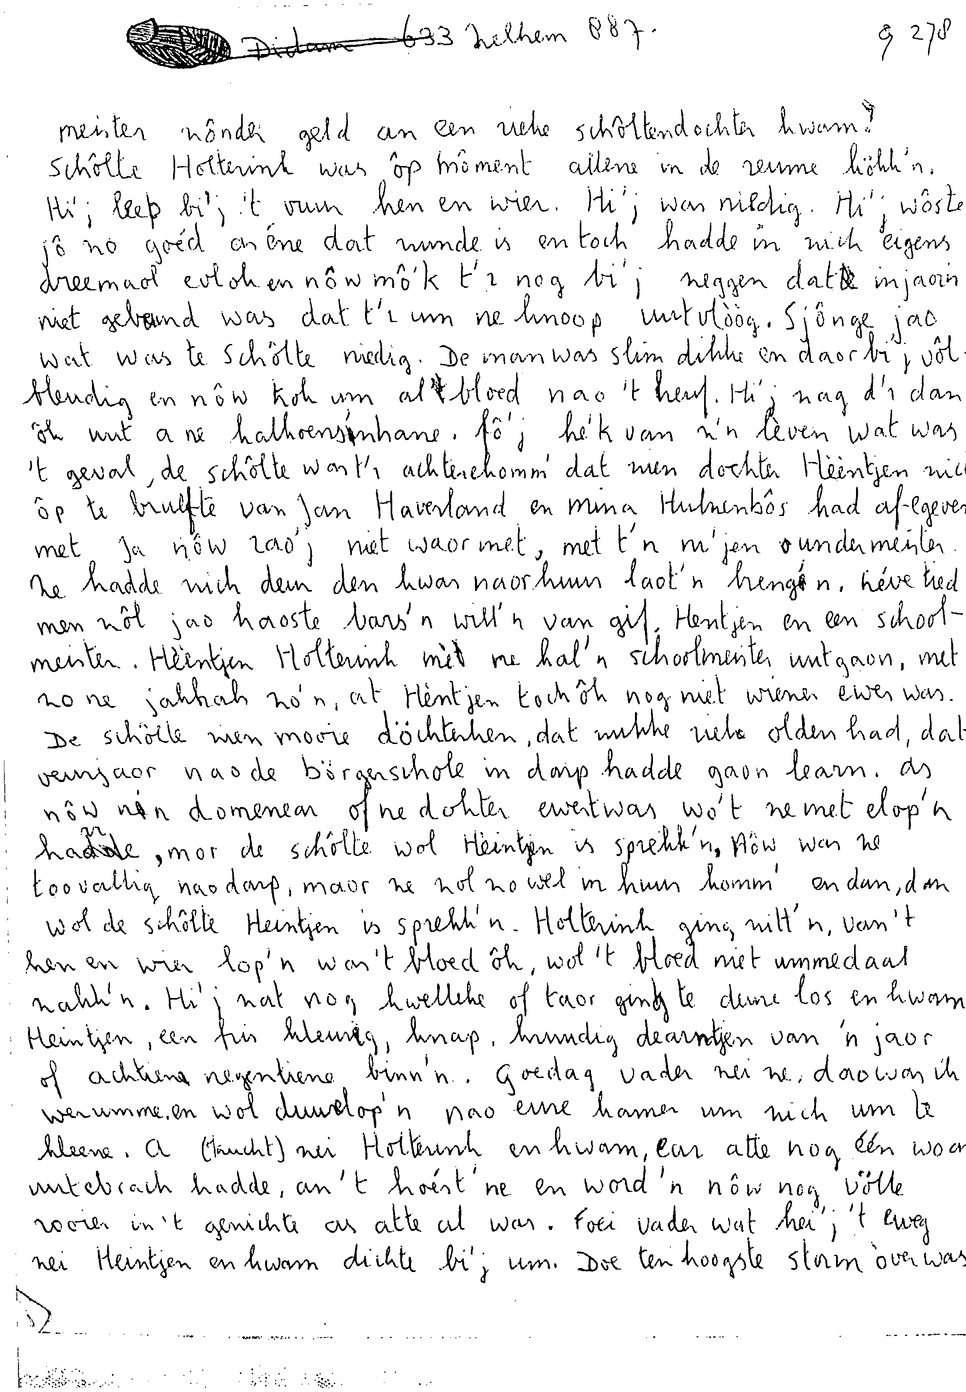 Didam 633 Zelhem 887. g 278
meister zônder geld an een rieke schôltendochter kwam?
Schôlte Holterink was ôp môment allene in de reume kökk'n.
Hi'j leep bi'j 't vuur hen en wier. Hi'j was niedig. Hi'j wôste
jô zo goéd as éne dat zunde is en toch hadde in zich eigens
dreemaol evloken nôw mô'k t'r nog bi'j zeggen dat injaorn
niet gebeurd was dat t'r um ne knoop uutvlòòg. Sjônge jao
wat was te Schôlte niedig. De man was slim dikke en daorbi'j vôl-
bleudig en nôw kok um al 't bloed nao 't heuf. Hi'j zag d'r dan
ôk uut a ne kalkoensenhane. Jô'j hè'k van z'n lèven wat was
't geval, de schôlte was t'r achterekomm' dat zien dochter Hèèntjen zich
ôp te brulfte van Jan Haverland en Mina Hulzenbôs had af-egeven
met ja nôw zao'j niet waor met, met t'n ni'jen oundermeister.
Ze hadde zich deur den kwas naorhuus laot'n breng'n. Léve tied
men zôl jao haoste bars'n will'n van gif. Hentjen en een school-
meister. Hèèntjen Holterink met ne kal'n schoolmeister uutgaon, met
zo ne jakhals zo'n, at Hèntjen toch ôk nog niet wiezer ewes was.
De schôlte zien mooie döchterken, dat zukke rieke olden had, dat
veursjaor nao de börgerschole in dorp hadde gaon learn. As
nôw nen domenear of ne dokter ewest was wo't ze met elop'n
hadde, mor de schôlte wol Heintjen is sprekk'n, Nôw was ze
toovallig nao dorp, maor ze zol zo wel in huus komm' en dan, dan
wol de schôlte Heintjen is sprekk'n. Holterink ging zitt'n, van 't
hen en wier lop'n was 't bloed ôk, wol 't bloed niet ummedaal
zakk'n. Hi'j zat nog kwelleke of taor ging te deure los en kwam
Heintjen, een fris kleurig, knap, kruudig dearntjen van 'n jaor
of achtiene negentiene binn'n. Goedag vader zei ze, dao was ik
werumme en wol duurelop'n nao eure kamer um zich um te
kleene. A (kucht) zei Holterink en kwam, ear atte nog één woord
uutebrach hadde, an 't hoést'ne en word'n nôw nog völle
rooier in 't gezichte as atte al was. Foei vader wat hei'j 't eweg
zei Heintjen en kwam dichte bi'j um. Doe ten hoogste storm over was